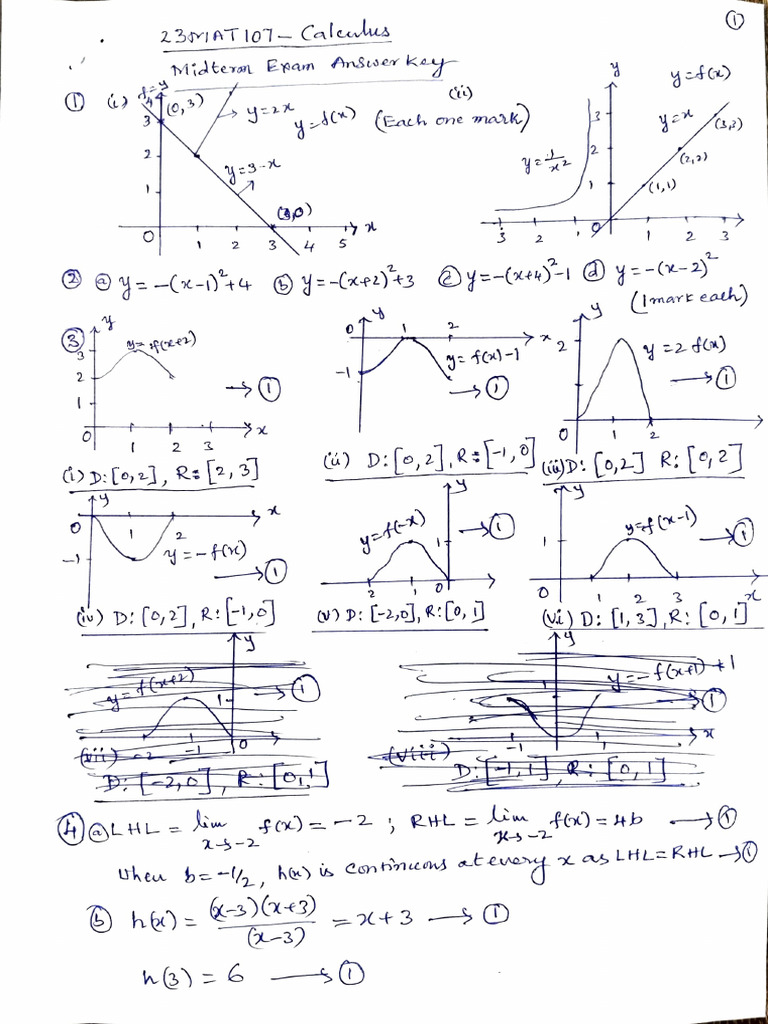 ①
23MAT107 - Calculus
Midterm Exam Answer Key
① (i) (0, 3) y=2x y=f(x) (Each one mark) (ii) y y=f(x)
3 y=x (3,3)
2 y=3-x y=1/x² 2 (2,2)
1 (3,0) 1 (1,1)
0 1 2 3 4 5 x 3 2 1 0 1 2 3
② ⓐ y = -(x-1)²+4 ⓑ y=-(x+2)²+3 ⓒ y=-(x+4)²-1 ⓓ y=-(x-2)²
(1 mark each)
③ y y=f(x+2) y y
3 0 1 2 x 2 y=2 f(x)
2 y=f(x)-1
1 → ① -1 → ① → ①
0 1 2 3 x 0 1 2
(i) D:[0,2], R:[2,3] (ii) D:[0,2], R:[-1,0] (iii) D:[0,2] R:[0,2]
y x y y
0 1 2 y=f(-x) → ① y=f(x-1)
-1 y=-f(x) 1 1 → ①
→ ① 2 1 0 0 1 2 3 x
(iv) D:[0,2], R:[-1,0] (v) D:[-2,0], R:[0,1] (vi) D:[1,3], R:[0,1]
y y
y=f(x+2) 1 → ① 1 y=-f(x+1)+1
→ ①
-2 -1 0 -1 1 x
(vii) (viii)
D:[-2,0], R:[0,1] D:[-1,1], R:[0,1]
④ ⓐ LHL = lim x→-2 f(x) = -2 ; RHL = lim x→-2 f(x) = 4b → ①
when b=-1/2, h(x) is continuous at every x as LHL=RHL → ①
ⓑ h(x) = (x-3)(x+3)/(x-3) = x+3 → ①
h(3) = 6 → ①